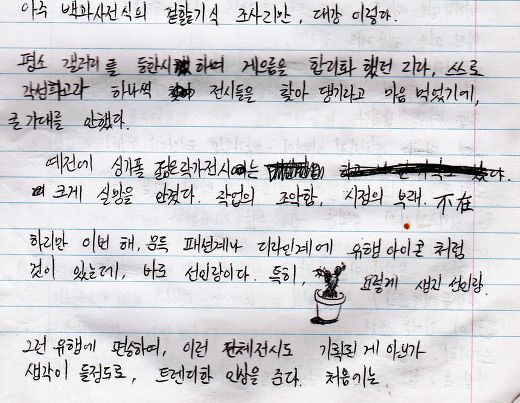 아주 백과사전식의 겉핥기식 조사라만, 대강 이렇다.
평소 갤러리를 등한시 하며 게으름을 합리화 했던 디라, 스스로
각성하고자 하나씩 전시들을 찾아 댕기라고 마음 먹었기에,
큰 기대를 안했다.
예전에 싱가폴 젊은작가전시에는
더 크게 실망을 안겼다. 작업의 조악함, 시점의 부재. 不在
하지만 이번 해, 문득 패션계나 디자인계에 유행 아이콘 처럼
것이 있는데, 바로 선인장이다. 특히, 요렇게 생긴 선인장.
그런 유행에 편승하여, 이런 단체전시도 기획된 게 아닌가
생각이 들정도로, 트렌디한 인상을 준다. 처음에는